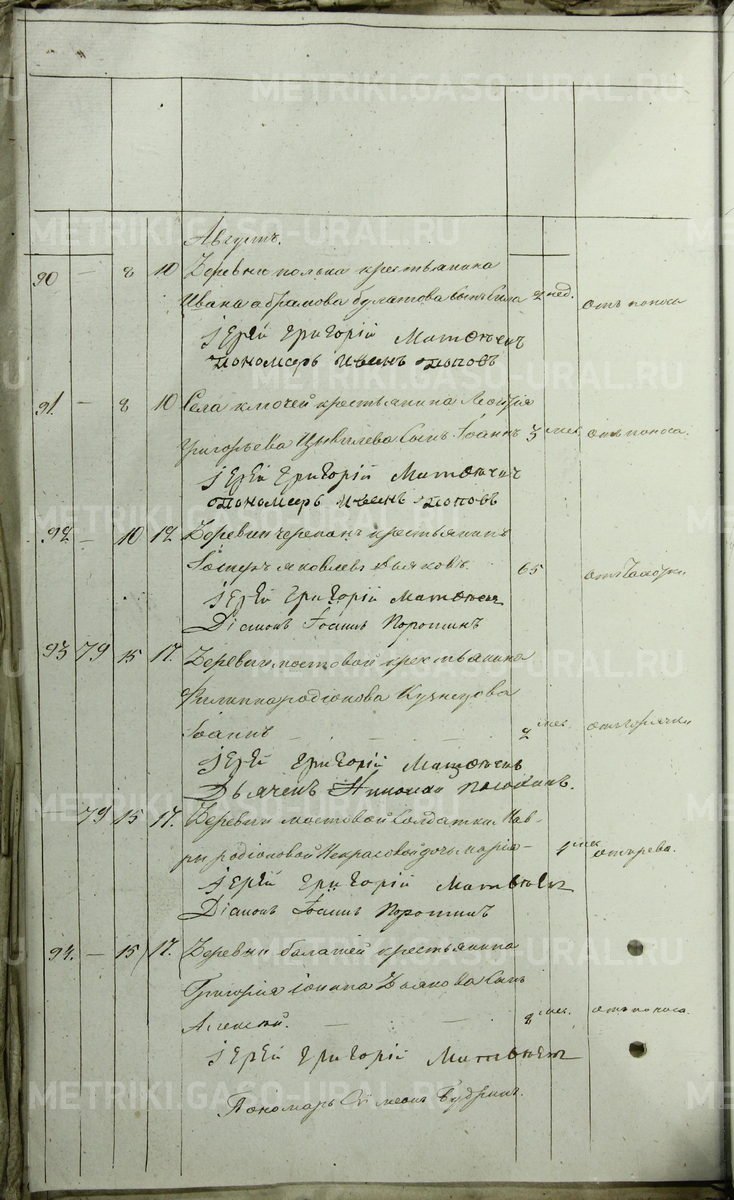 METRIKI.GASO-URAL.RU
Августъ.
90 — 8 10 Деревни полька крестьянина
Ивана абрамова булатова сынъ 2 нед. отъ поноса
Іерей Григорій Матѳѣевъ
Пономарь Иванъ Поповъ
91. — 8 10 Села ключей крестьянина
григорьева сынъ Іоаннъ 3 мес. отъ поноса.
Іерей Григорій Матѳѣевъ
Пономарь Иванъ Поповъ
92 — 10 12 Деревни черепан крестьянинъ
яковлевъ дьяковъ. 65
Іерей Григорій Матѳѣевъ
Діаконъ Іоаннъ Поротинъ
93 79 15 17. Деревни мостовой крестьянина
Филиппа родіонова Кузнецова
Іоаннъ — — 2 мес. отъ горячки
Іерей Григорій Матѳѣевъ
Дьячекъ Николай
— 79 15 17. Деревни мостовой солдатки Мав-
ры родіоновой Некрасовой дочь марія — 1 мес отъ рева.
Іерей Григорій Матѳѣевъ
Діаконъ Іоаннъ Поротинъ
94. — 15 17. Деревни крестьянина
Григорія іонина Дьякова сынъ
Алексѣй. — — 8 мес. отъ поноса.
Іерей Григорій Матѳѣевъ
Пономарь Сѵмеонъ Будринъ.